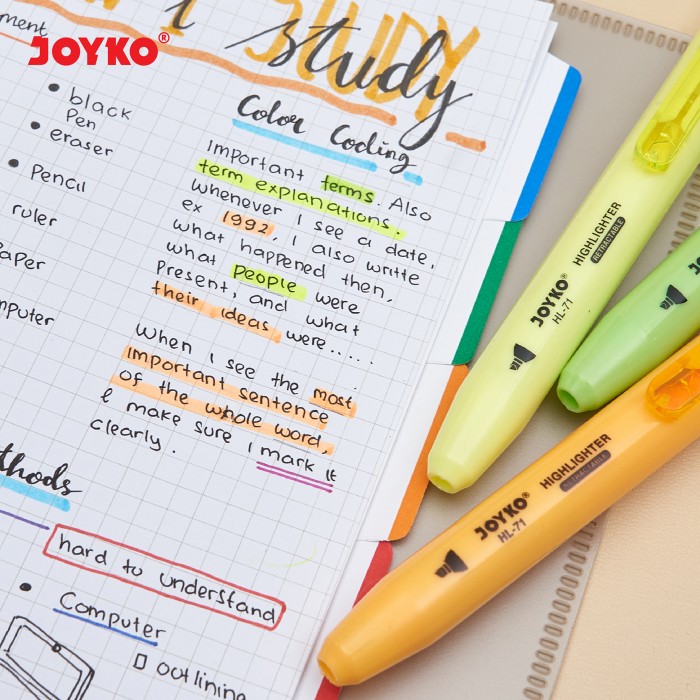 JOYKO®
I STUDY
study
ment
black
Pen
eraser
Pencil
ruler
Paper
mputer
Color Coding
Important terms. Also
term explanations.
Whenever I see a date,
ex 1992, I also write
what happened then,
what people were
Present, and what
their ideas were.....
When I see the most
important sentence
of the whole word,
& make sure I mark it
clearly.
thods
hard to understand
Computer
outlining
HIGHLIGHTER
RETRACTABLE
JOYKO®
HL-71
HIGHLIGHTER
RETRACTABLE
JOYKO®
HL-71